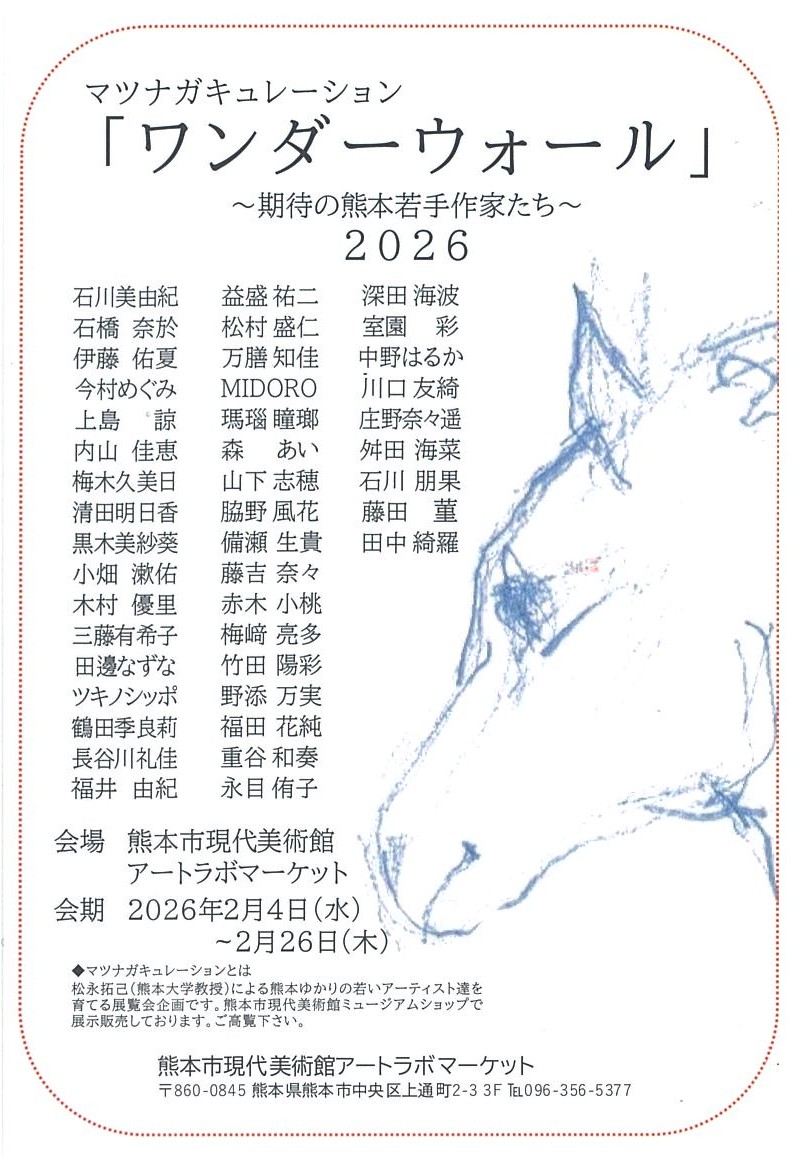 マツナガキュレーション
「ワンダーウォール」
～期待の熊本若手作家たち～
2026
石川美由紀
石橋 奈於
伊藤 佑夏
今村めぐみ
上島 諒
内山 佳恵
梅木久美日
清田明日香
黒木美紗葵
小畑 漱佑
木村 優里
三藤有希子
田邊なずな
ツキノシッポ
鶴田季良莉
長谷川礼佳
福井 由紀
益盛 祐二
松村 盛仁
万膳 知佳
MIDORO
瑪瑙 瞳瑯
森 あい
山下 志穂
脇野 風花
備瀬 生貴
藤吉 奈々
赤木 小桃
梅﨑 亮多
竹田 陽彩
野添 万実
福田 花純
重谷 和奏
永目 侑子
深田 海波
室園 彩
中野はるか
川口 友綺
庄野奈々遥
舛田 海菜
石川 朋果
藤田 菫
田中 綺羅
会場 熊本市現代美術館
アートラボマーケット
会期 2026年2月4日(水)
~2月26日(木)
◆マツナガキュレーションとは
松永拓己(熊本大学教授)による熊本ゆかりの若いアーティスト達を
育てる展覧会企画です。熊本市現代美術館ミュージアムショップで
展示販売しております。ご高覧下さい。
熊本市現代美術館アートラボマーケット
〒860-0845 熊本県熊本市中央区上通町2-3 3F ℡096-356-5377